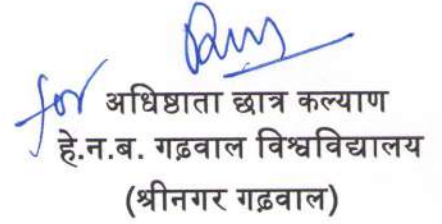 for अधिष्ठाता छात्र कल्याण
हे.न.ब. गढ़वाल विश्वविद्यालय
(श्रीनगर गढ़वाल)